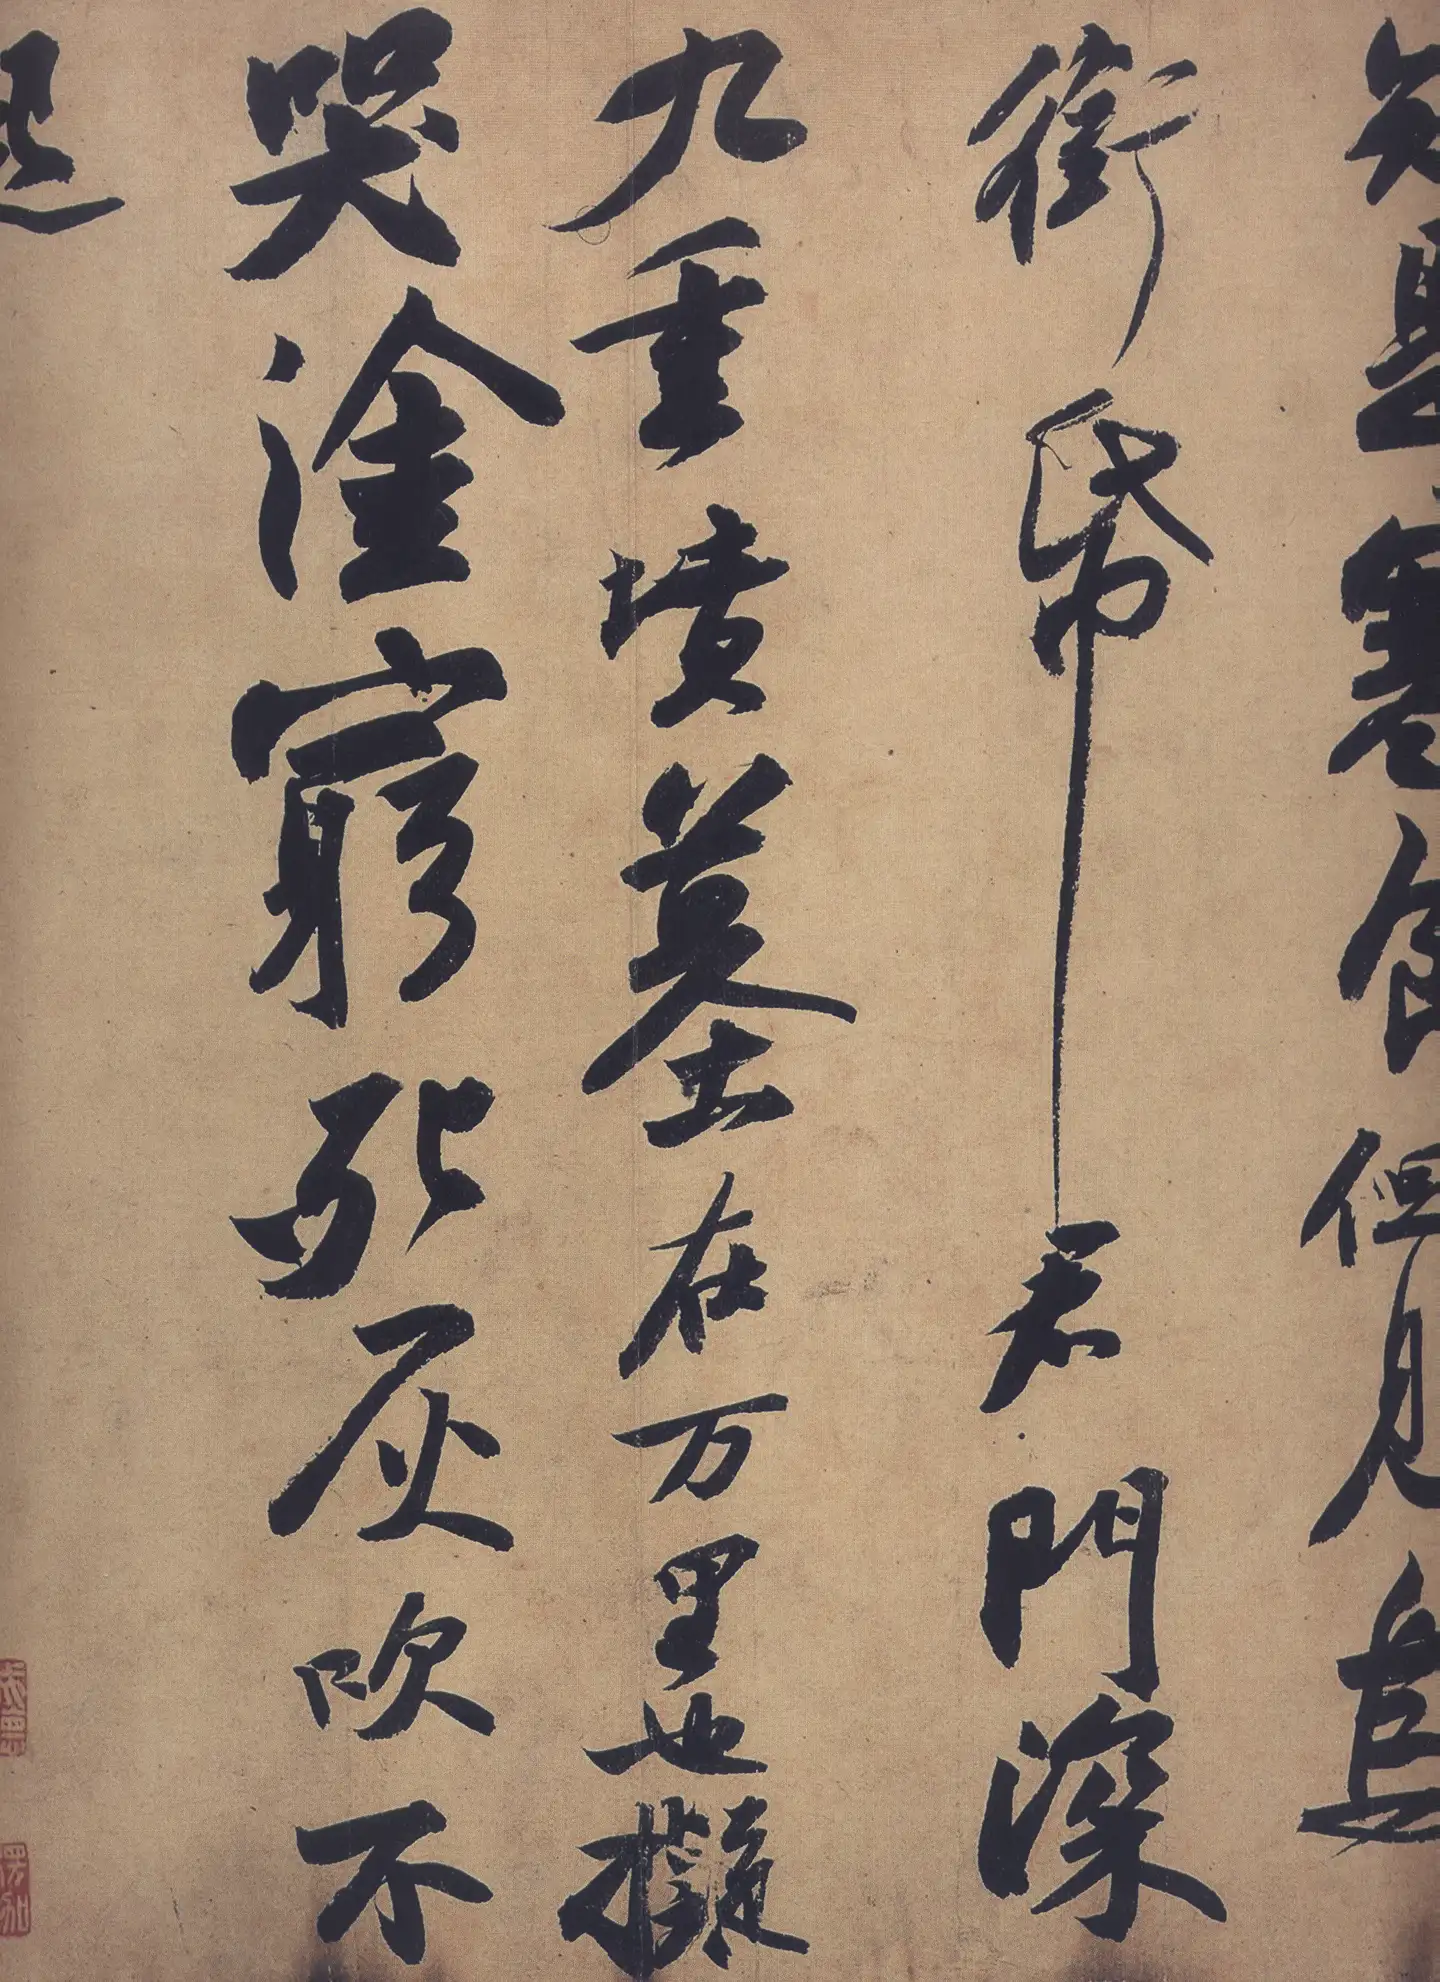 知是寒食但見烏
銜帋君門深
九重墳墓在万里也擬
哭塗窮死灰吹不
起